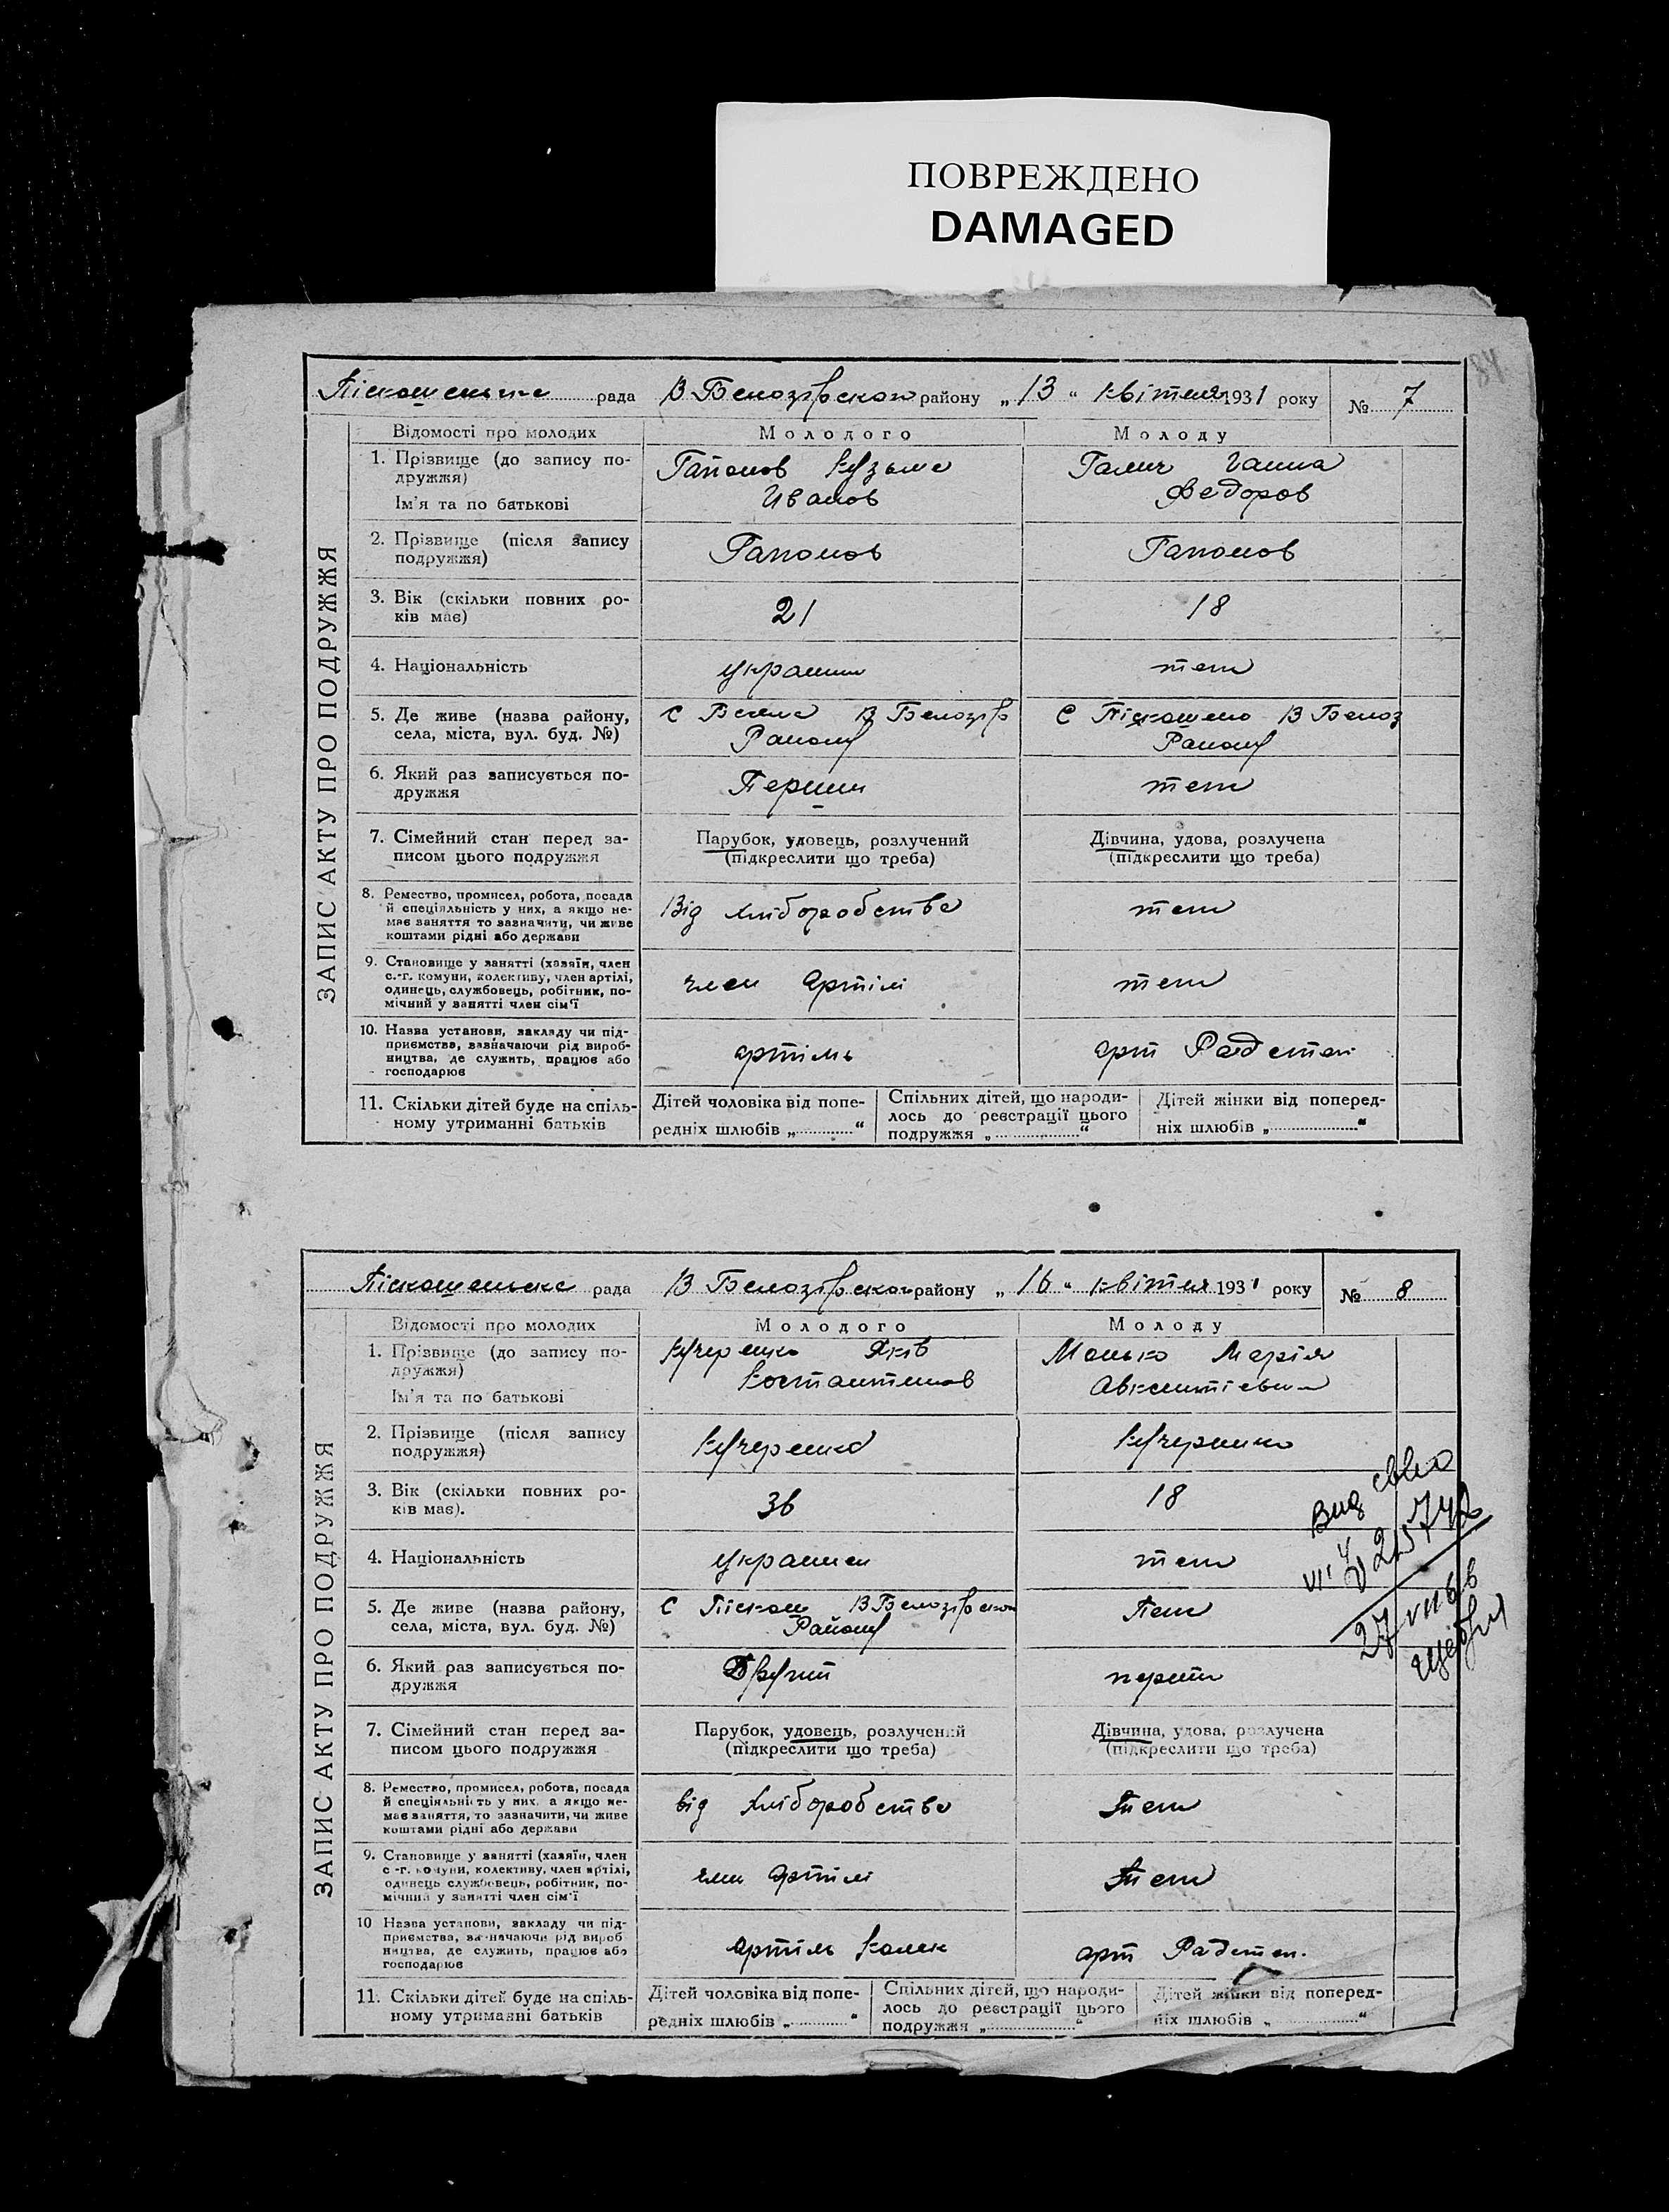 ПОВРЕЖДЕНО
DAMAGED
84
рада В Белозірськом району „ 13 “ квітня 1931 року № 7
ЗАПИС АКТУ ПРО ПОДРУЖЖЯ
Відомості про молодих Молодого Молоду
1. Прізвище (до запису по-
дружжя)
Ім'я та по батькові
Гапонов Кузьма
Иванов
Галич Ганна
Федоров
2. Прізвище (після запису
подружжя)
Гапонов
Гапонов
3. Вік (скільки повних ро-
ків має)
21
18
4. Національність
украинц
теж
5. Де живе (назва району,
села, міста, вул. буд. №)
с В Белозір
Району
С Піскошено В Белоз
Району
6. Який раз записується по-
дружжя
Перший
теж
7. Сімейний стан перед за-
писом цього подружжя
Парубок, удовець, розлучений
(підкреслити що треба)
Дівчина, удова, розлучена
(підкреслити що треба)
8. Ремество, промисел, робота, посада
й спеціяльність у них, а якщо не-
має заняття то зазначити, чи живе
коштами рідні або держави
Від хліборобства
теж
9. Становище у занятті (хазяїн, член
с.-г. комуни, колективу, член артілі,
одинець, службовець, робітник, по-
мічний у занятті член сім'ї
член артілі
теж
10. Назва установи, закладу чи під-
приємства, зазначаючи рід вироб-
ництва, де служить, працює або
господарює
артіль
арт Радстеп
11. Скільки дітей буде на спіль-
ному утриманні батьків
Дітей чоловіка від попе-
редніх шлюбів „ “
Спільних дітей, що народи-
лось до реєстрації цього
подружжя „ “
Дітей жінки від поперед-
ніх шлюбів „ “
рада В Белозірськом району „ 16 “ квітня 1931 року № 8
ЗАПИС АКТУ ПРО ПОДРУЖЖЯ
Відомості про молодих Молодого Молоду
1. Прізвище (до запису по-
дружжя)
Ім'я та по батькові
Кучеренко Яків
Костантинов
Монько Марія
Авксентієвна
2. Прізвище (після запису
подружжя)
Кучеренко
Кучеренко
3. Вік (скільки повних ро-
ків має).
36
18
4. Національність
украинец
теж
5. Де живе (назва району,
села, міста, вул. буд. №)
С Піскош В Белозірском
Району
Теж
6. Який раз записується по-
дружжя
Другий
перший
7. Сімейний стан перед за-
писом цього подружжя
Парубок, удовець, розлучений
(підкреслити що треба)
Дівчина, удова, розлучена
(підкреслити що треба)
8. Ремество, промисел, робота, посада
й спеціяльність у них, а якщо не-
має заняття, то зазначити, чи живе
коштами рідні або держави
від хліборобства
Теж
9. Становище у занятті (хазяїн, член
с-г. комуни, колективу, член артілі,
одинець службовець, робітник, по-
мічний у занятті член сім'ї
член артілі
Теж
10 Назва установи, закладу чи під-
приємства, зазначаючи рід вироб
ництва, де служить, працює або
господарює
артіль колек
арт Радстеп.
11. Скільки дітей буде на спіль-
ному утриманні батьків
Дітей чоловіка від попе-
редніх шлюбів „ “
Спільних дітей, що народи-
лось до реєстрації цього
подружжя „ “
Дітей жінки від поперед-
ніх шлюбів „ “
Выд св-во